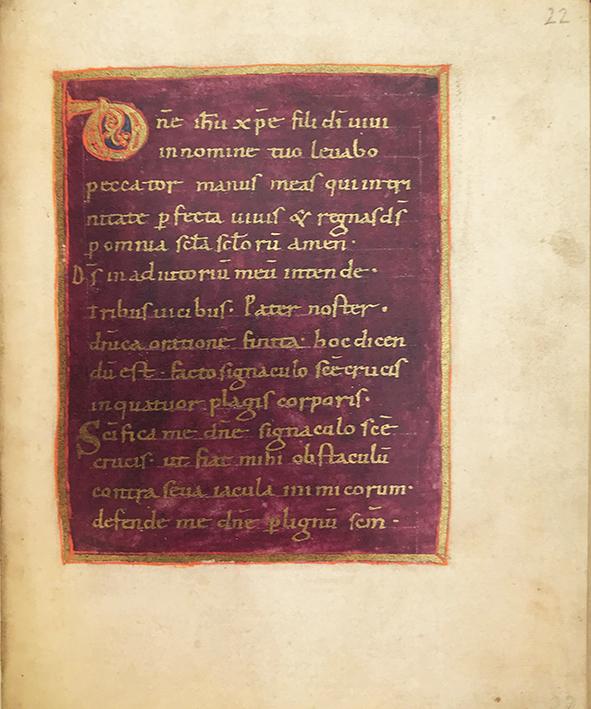 22
Dn̄e ih̄u xp̄e fili dī uiui
in nomine tuo levabo
peccator manus meas qui in tri
nitate ꝑfecta uiuis & regnas dś
ꝑ omnia sc̄la sc̄lorū amen·
Dś in adiutoriū meū intende·
Tribus uicibus· Pater noster·
dn̄ica oratione finita· hoc dicen
dū est· facto signaculo sc̄e crucis
in quatuor plagis corporis·
Sc̄ifica me dn̄e signaculo sc̄e
crucis· ut fiat mihi obstaculū
contra seua iacula inimicorum·
defende me dn̄e ꝑ lignū sc̄m·